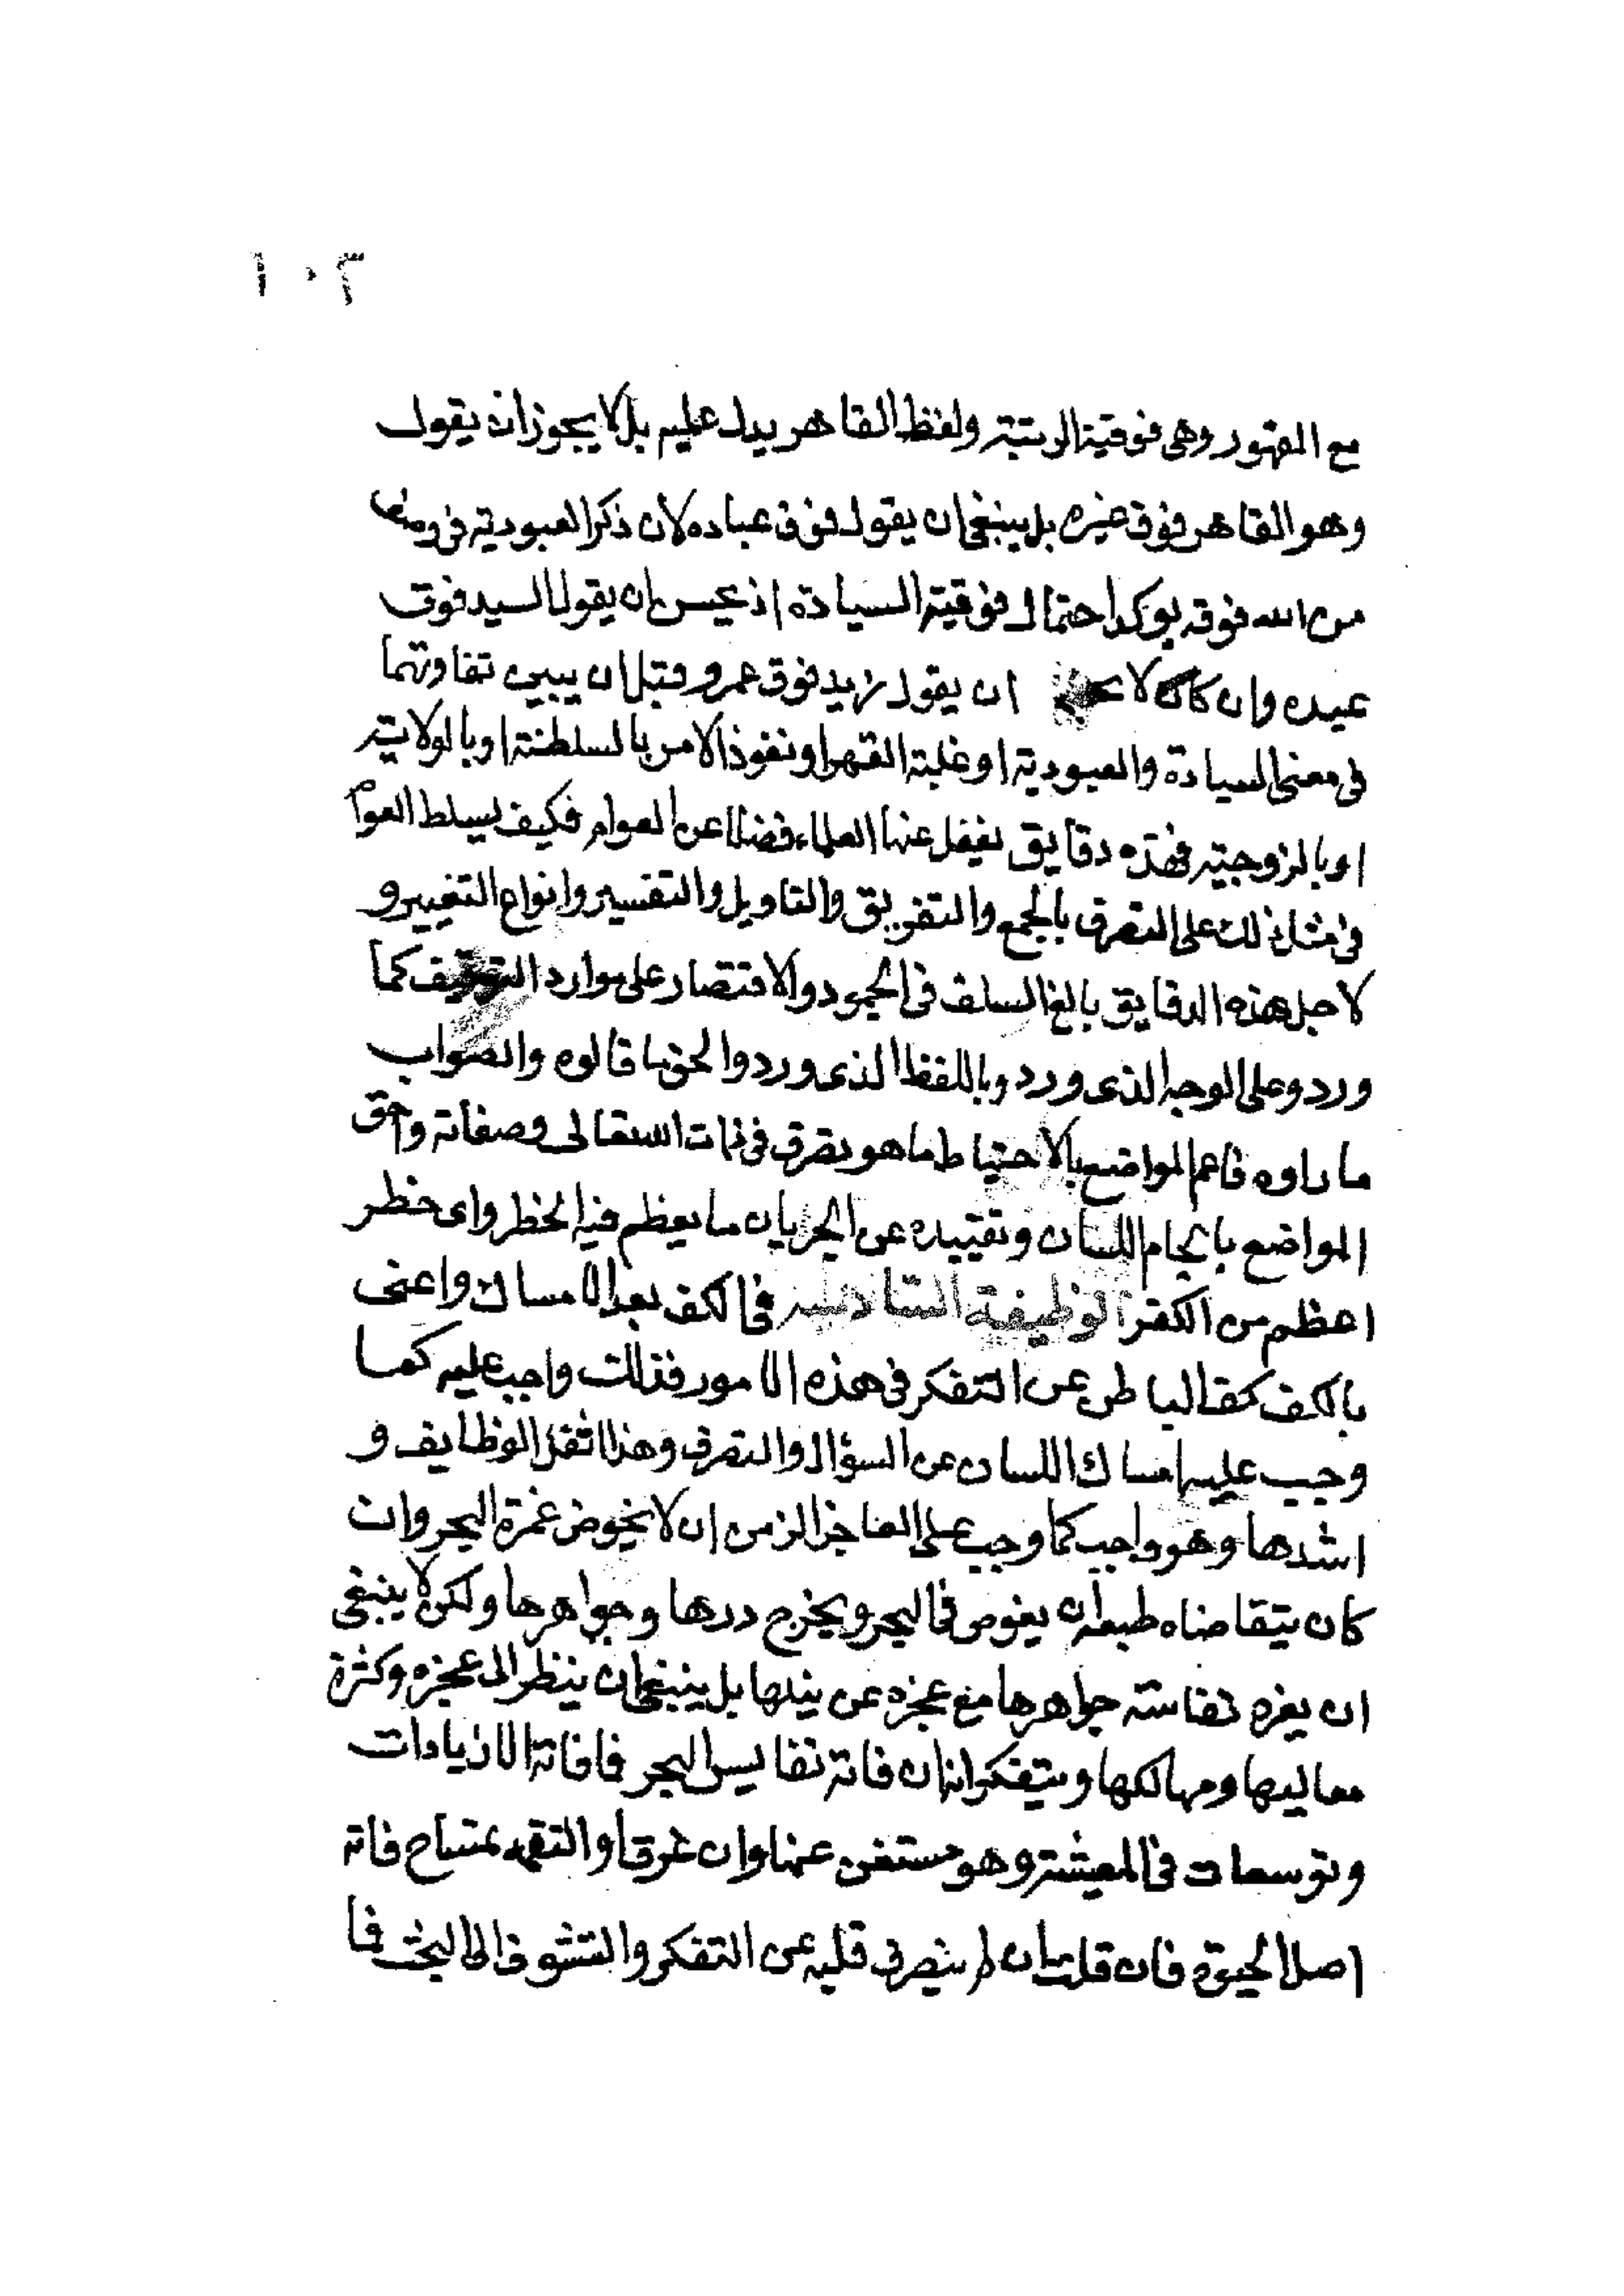 ١٠٣
مع المقهور وهى فوقية الرتبة ولفظ القاهر يدل عليه بل لا يجوز ان يقول
وهو القاهر فوق غيره بل ينبغى ان يقول فوق عباده لان ذكر العبودية فى وصف
من الله فوقه يوكد احتمال فوقية السيادة اذ يحسن ان يقول السيد فوق
عبده وان كان لا ان يقول زيد فوق عمرو قبل ان يبين تفاوتهما
فى معنى السيادة والعبودية او غلبة القهر او نفوذ الامر بالسلطنة او بالولاية
او بالزوجية فهذه دقايق يغفل عنها العلماء فضلا عن العوام فكيف يسلط العوام
فى مثل ذلك على التصرف بالجمع والتفريق والتاويل والتفسير وانواع التغيير و
لاجل هذه الدقايق بالغ السلف فى الجمود والاقتصار على موارد التوقيف كما
ورد وعلى الوجه الذى ورد وباللفظ الذى ورد والحق ما قالوه والصواب
ما راوه فاهم المواضع بالاحتياط ما هو تصرف فى ذات الله تعالى وصفاته واحق
المواضع بالجام اللسان وتقييده عن الجريان ما يعظم فيه الخطر واى خطر
اعظم من الكفر الوظيفة السادسه فى الكف بعد الامساك واعنى
بالكف كف الباطن عن التفكر فى هذه الامور فذلك واجب عليه كما
وجب عليه امساك اللسان عن السؤال والتصرف وهذا اثقل الوظايف و
اشدها وهو واجب كما وجب على العاجز الزمن ان لا يخوض غمرة البحر وان
كان يتقاضاه طبعه ان يغوص فى البحر ويخرج دررها وجواهرها ولكن لا ينبغى
ان يغره نفاسة جواهرها مع عجزه عن نيلها بل ينبغى ان ينظر الى عجزه وكثرة
معاليها ومهالكها ويتفكر انه ان فاته نفايس البحر فما فاته الا زيادات
وتوسعات فى المعيشة وهو مستغن عنها وان غرق او التقمه تمساح فاته
اصل الحيوة فان قلت ان لم ينصرف قلبه عن التفكر والتشوف الى البحث فما